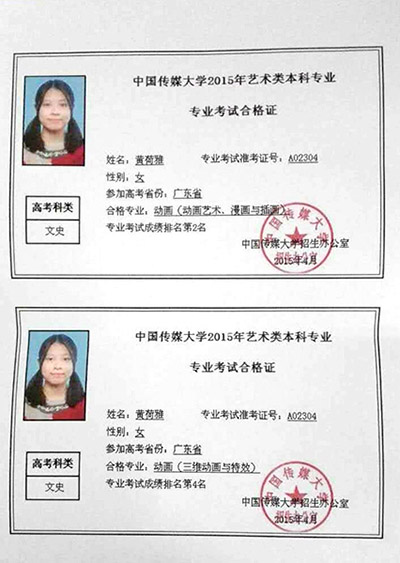 中国传媒大学2015年艺术类本科专业
专业考试合格证
姓名：黄荷雅 专业考试准考证号：A02304
性别：女
参加高考省份：广东省
合格专业：动画（动画艺术、漫画与插画）
专业考试成绩排名第2名
高考科类
文史
中国传媒大学招生办公室
2015年4月
中国传媒大学
招生办公室
中国传媒大学2015年艺术类本科专业
专业考试合格证
姓名：黄荷雅 专业考试准考证号：A02304
性别：女
参加高考省份：广东省
合格专业：动画（三维动画与特效）
专业考试成绩排名第4名
高考科类
文史
中国传媒大学招生办公室
2015年4月
中国传媒大学
招生办公室